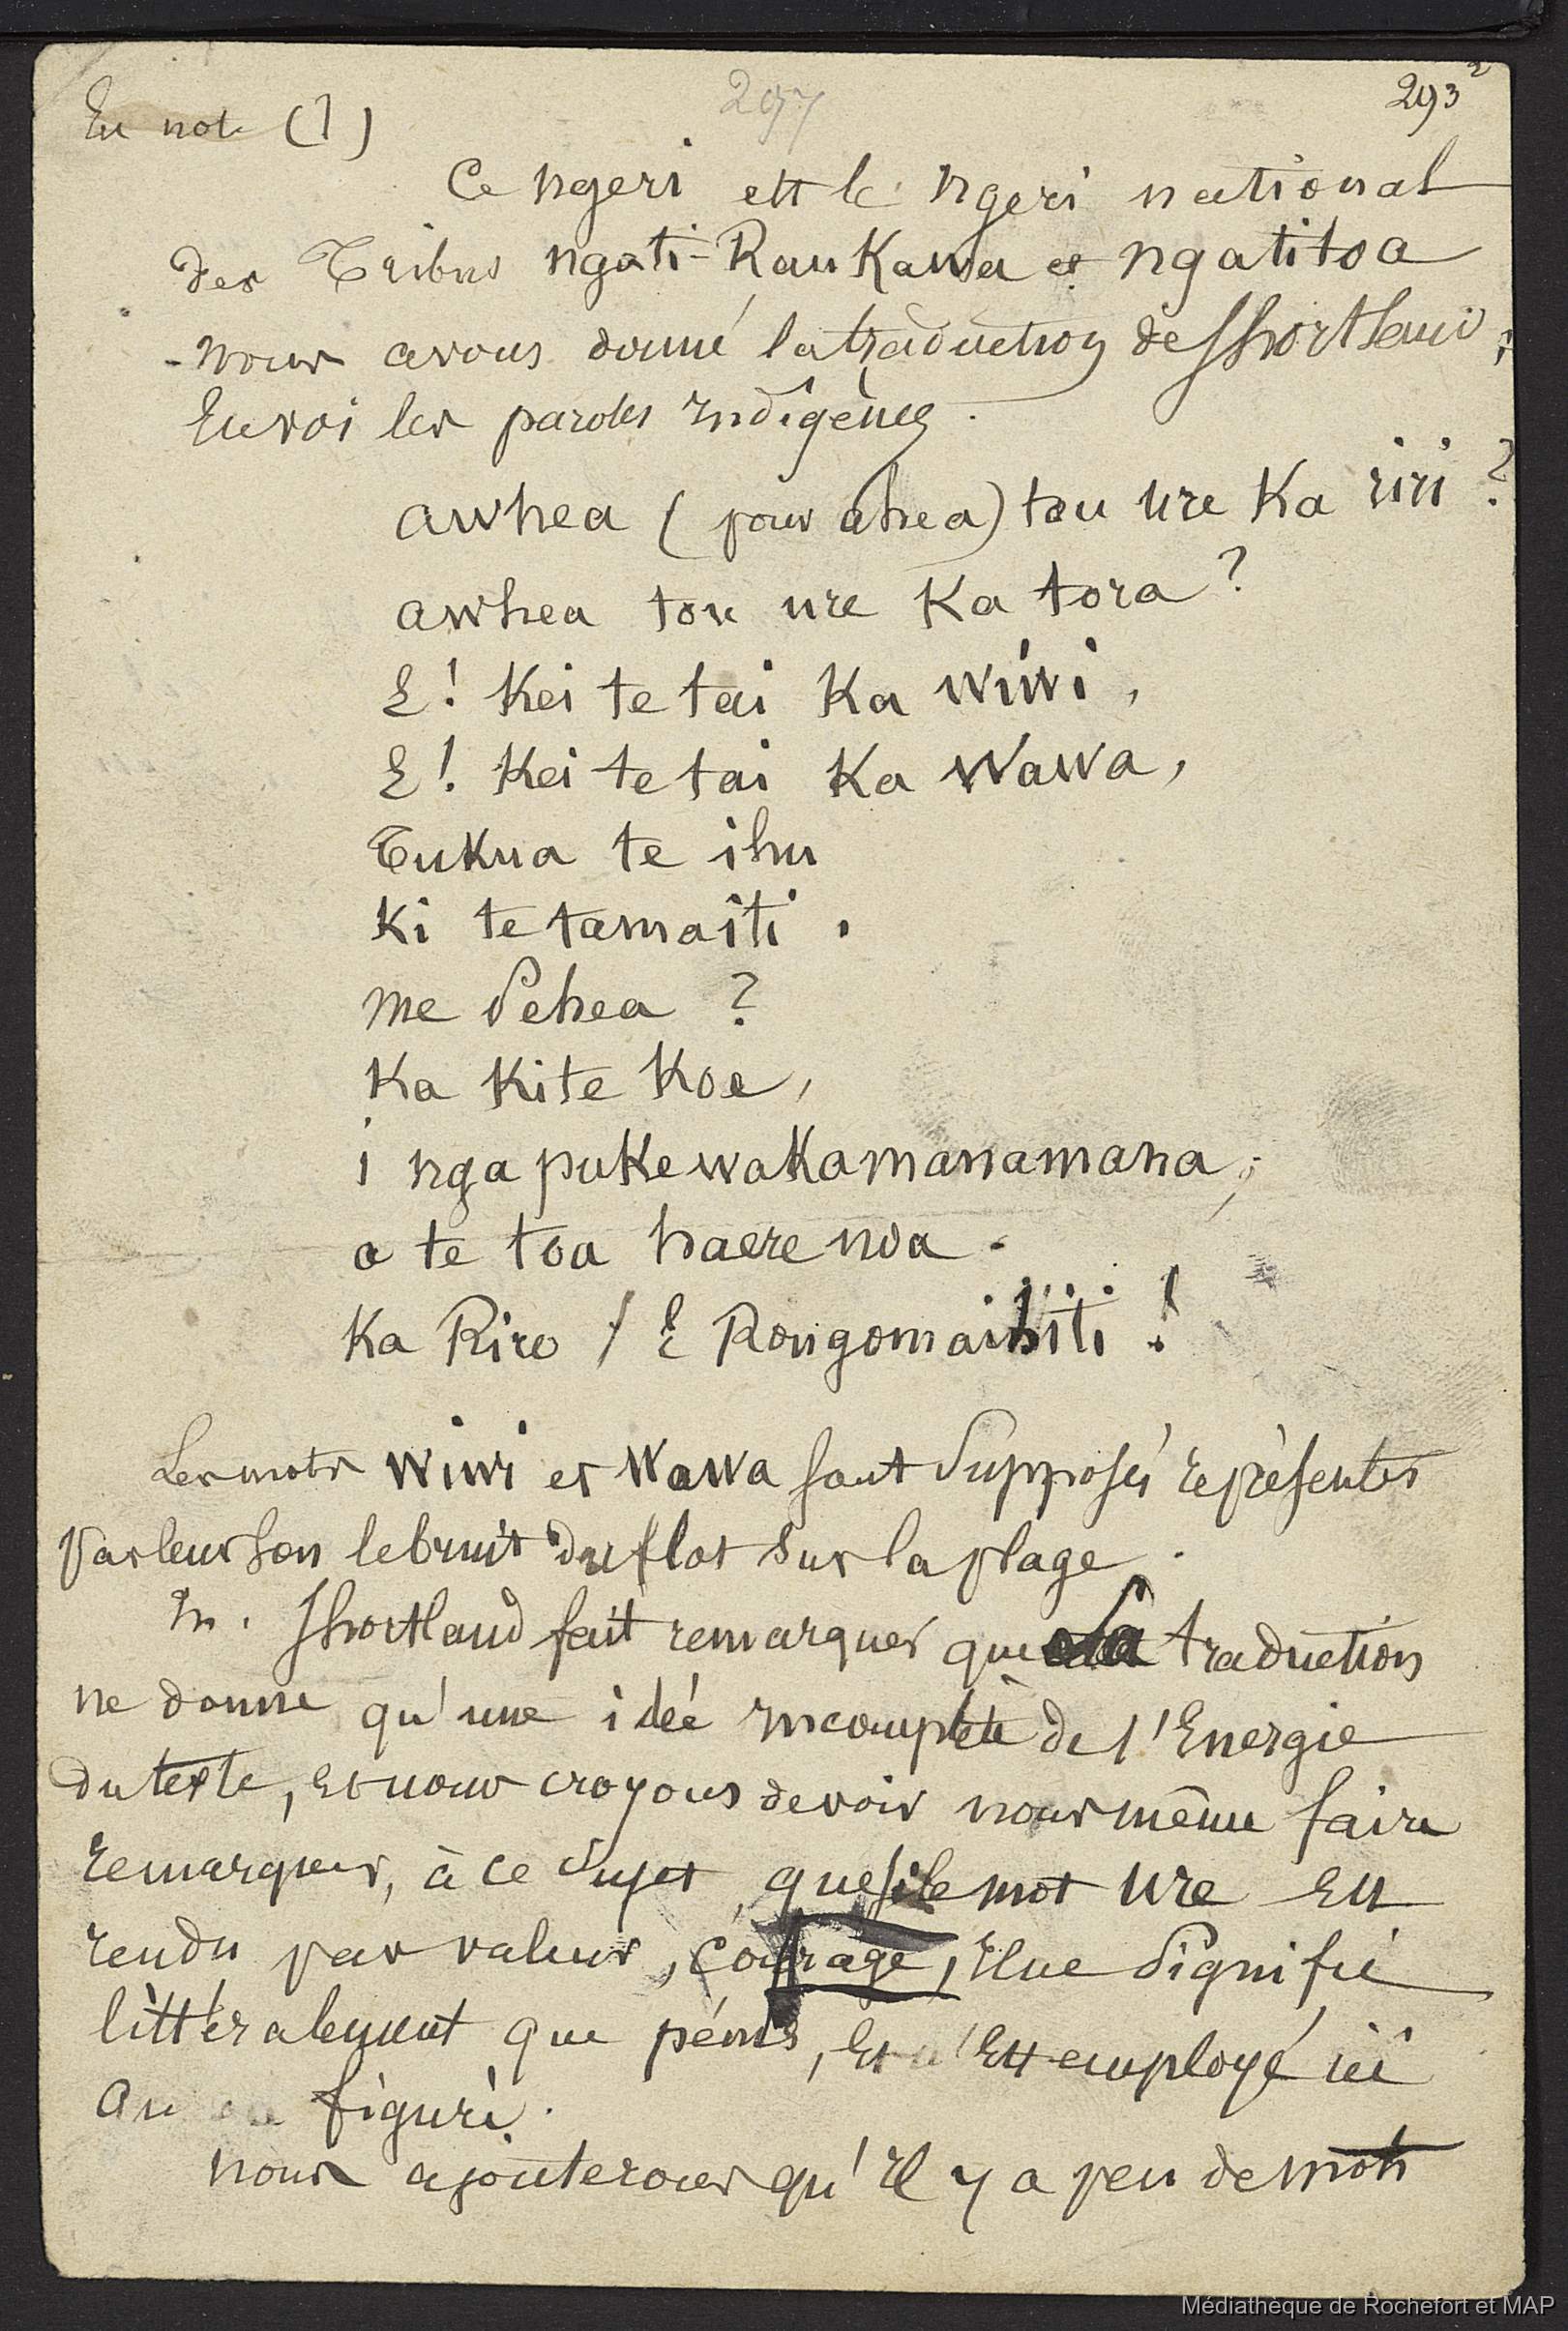 En note (1)
297
293²
Ce ngeri est le ngeri national
des Tribus ngati-RauKawa et ngatitoa
nous avons donné la traduction de Shortland;
En voi les paroles indigènes.
awhea (pour ahea) tou ure Ka riri?
awhea tou ure Ka tora?
E! Kei te tai Ka wiwi,
E! Kei te tai Ka wawa,
Tukua te ihu
Ki te tamaiti.
me Pehea?
Ka Kite Koe,
i nga puke waKamanamana,
a te toa haere noa.
Ka Riro! E Rongomaihiti!
Les mots wiwi et wawa sont Supposés représenter
Par leur son le bruit du flot Sur la plage.
M. Shortland fait remarquer que la traduction
ne donne qu'une idée incomplète de l'Energie
du texte, et nous croyons devoir nous même faire
remarquer, à ce Sujet, que si le mot ure Est
rendu par valeur, courage, il ne Signifie
littéralement que pénis, Et n'Est employé ici
Au figuré.
nous ajouterons qu'il y a peu de mots
Médiathèque de Rochefort et MAP